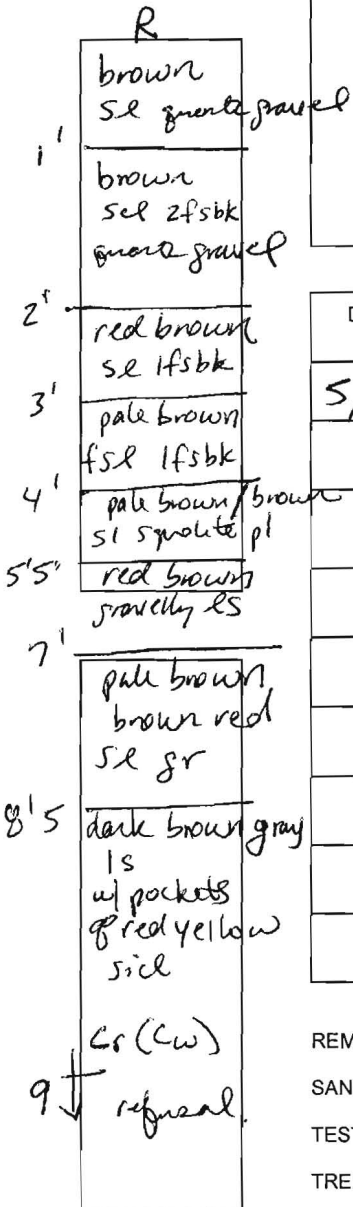 R
brown
sl quartz gravel
1'
brown
scl 2fsbk
quartz gravel
2'
red brown
sl 1fsbk
3'
pale brown
fsl 1fsbk
4'
pale brown/brown
sl saprolite pl
5'5"
red brown
gravelly ls
7'
pale brown
brown red
sl gr
8'5
dark brown gray
ls
w/ pockets
of red yellow
sicl
Cr (Cw)
9
refusal
D
5
REM
SAN
TEST
TRE